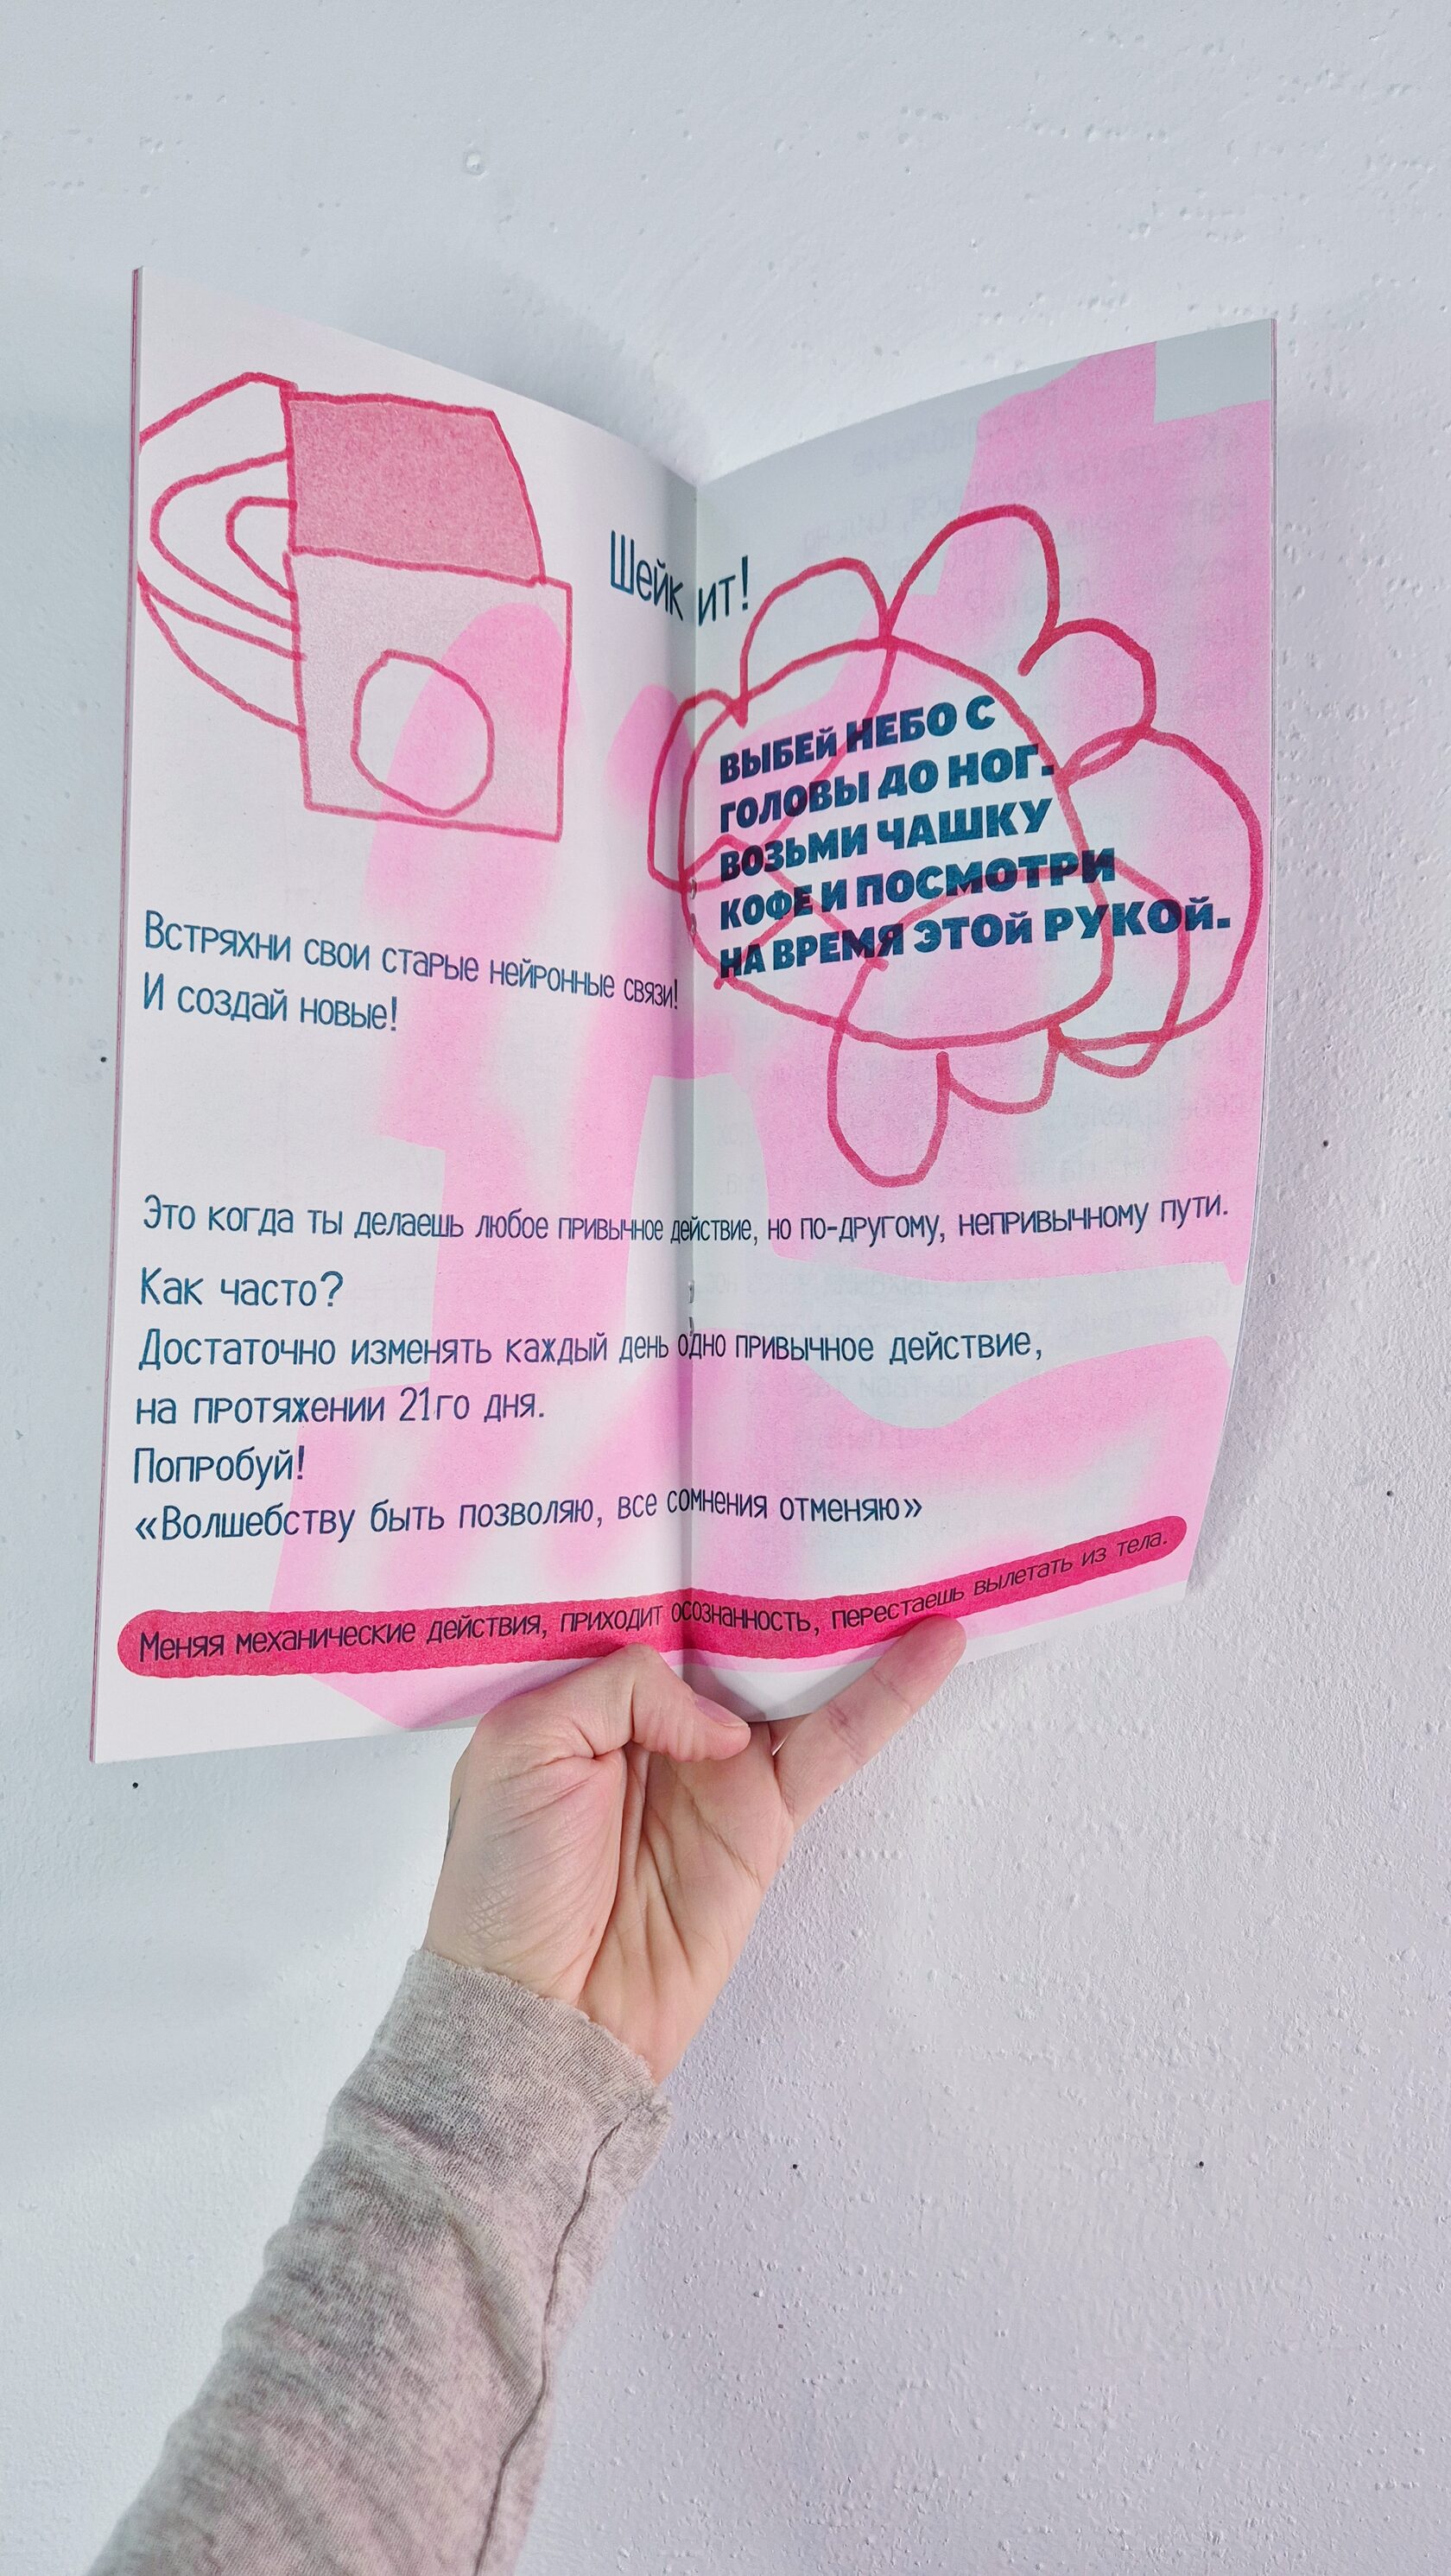 Шейк ит!
ВЫБЕЙ НЕБО С
ГОЛОВЫ ДО НОГ.
ВОЗЬМИ ЧАШКУ
КОФЕ И ПОСМОТРИ
НА ВРЕМЯ ЭТОЙ РУКОЙ.
Встряхни свои старые нейронные связи!
И создай новые!
Это когда ты делаешь любое привычное действие, но по-другому, непривычному пути.
Как часто?
Достаточно изменять каждый день одно привычное действие,
на протяжении 21го дня.
Попробуй!
«Волшебству быть позволяю, все сомнения отменяю»
Меняя механические действия, приходит осознанность, перестаешь вылетать из тела.